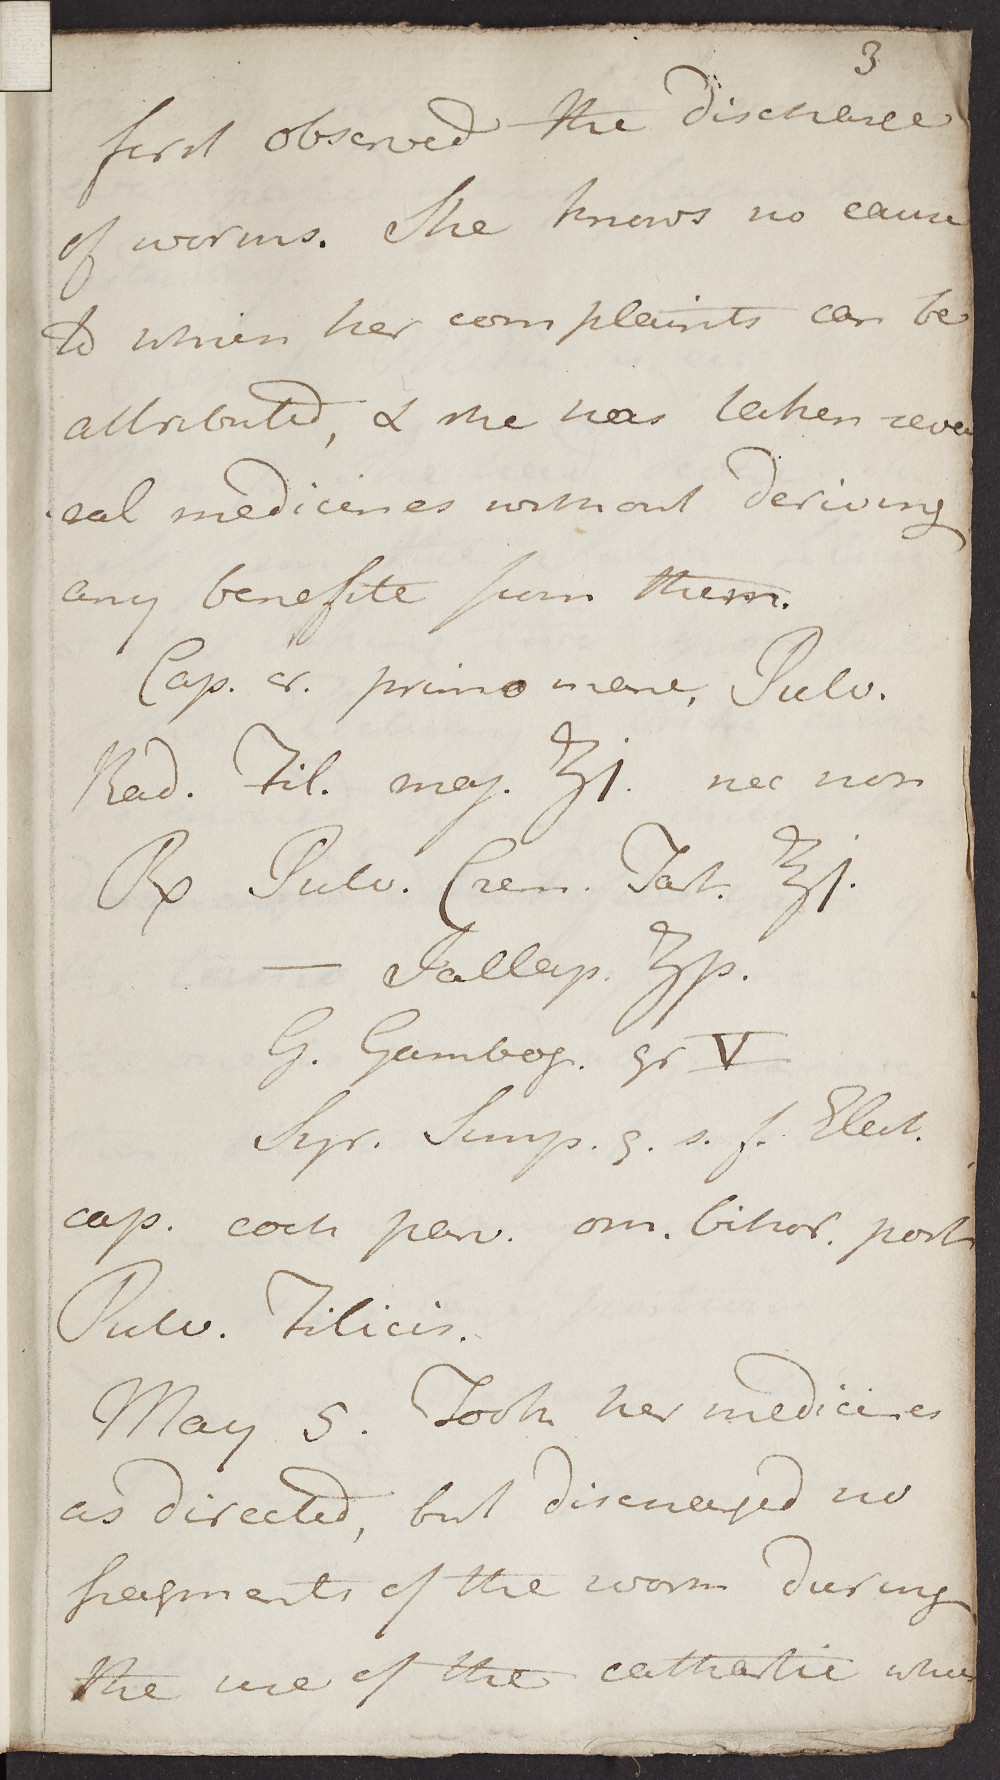 3
first observed the discharge
of worms. She knows no cause
to which her complaints can be
attributed, & she has taken seve
ral medicines without deriving
any benefite from them.
Cap. cr. primo mane, Pulv.
Rad. Fil. maj. ʒj. nec non
℞ Pulv. Crem. Tart. ʒj.
— Jallap. ʒß.
G. Gambog. gr V
Syr. Simp. q. s. f. Elect.
cap. coch parv. om. bihor. post
Pulv. Filicis.
May 5. Took her medicines
as directed, but discharged no
fragments of the worm during
the use of the cathartic